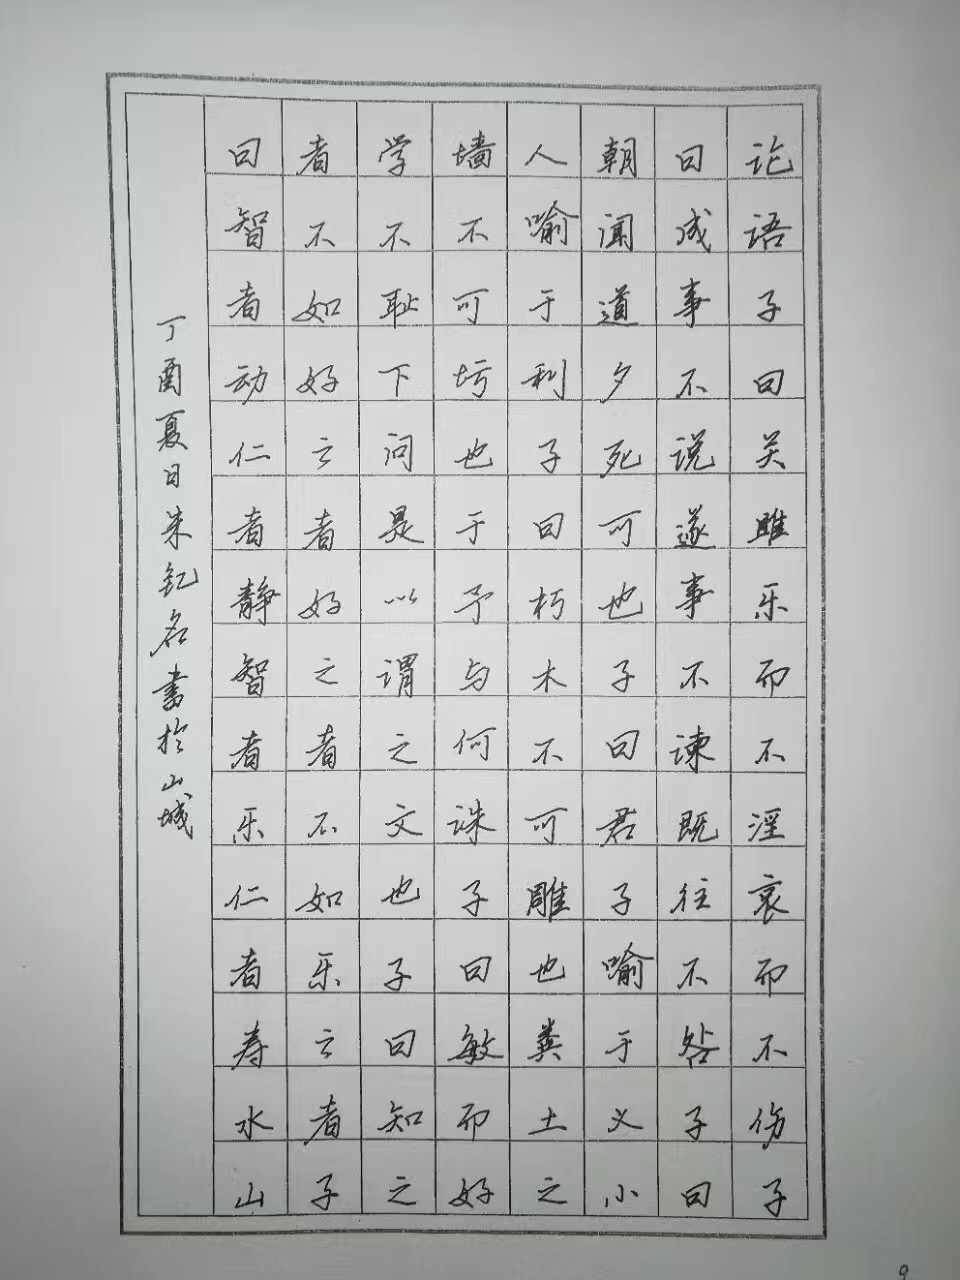 论语子曰关雎乐而不淫哀而不伤子
曰成事不说遂事不谏既往不咎子曰
朝闻道夕死可也子曰君子喻于义小
人喻于利子曰朽木不可雕也粪土之
墙不可圬也于予与何诛子曰敏而好
学不耻下问是以谓之文也子曰知之
者不如好之者好之者不如乐之者子
曰智者动仁者静智者乐仁者寿水山
丁酉夏日朱钇名书于山城
9